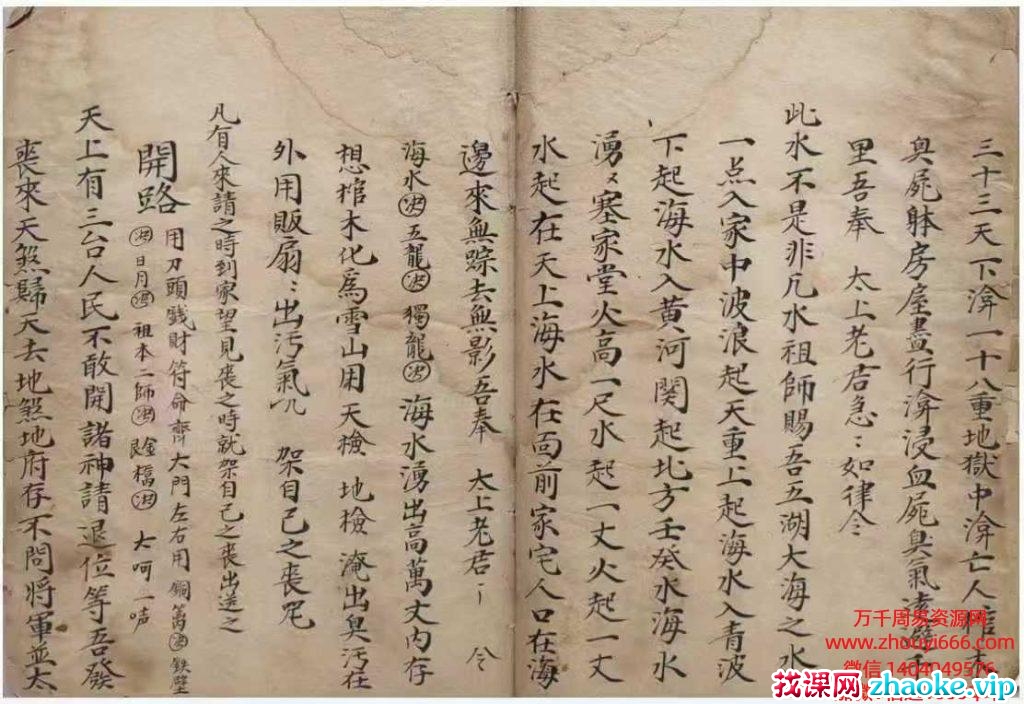 三十三天下渰一十八重地獄中渰亡人棺木
臭屍躰房屋晝行渰浸血屍臭氣遠避千
里吾奉　太上老君急〻如律令
此水不是非凡水祖師賜吾五湖大海之水
一点入家中波浪起天重上起海水入青波
下起海水入黄河関起北方壬癸水海水
湧〻塞家堂火高一尺水起一丈火起一丈
水起在天上海水在面前家宅人口在海
邊來無踪去無影吾奉　太上老君〻　令
海水 五龍 獨龍 海水湧出高萬丈内存
想棺木化爲雪山用天檢　地檢　淹出臭污在
外用販扇〻出污氣　架自己之喪咒
凡有人來請之時到家望見喪之時就架自己之喪出送之
開路　用刀頭錢財符命齊大門左右用銅 鉄壁
日月 祖本二師 橋 大呵一声
天上有三台人民不敢開諸神請退位等吾發
喪來天煞歸天去地煞地府存不問將軍並太
万千周易资源网
www.zhouyi666.com
微信1404049576
找课网zhaoke.vip